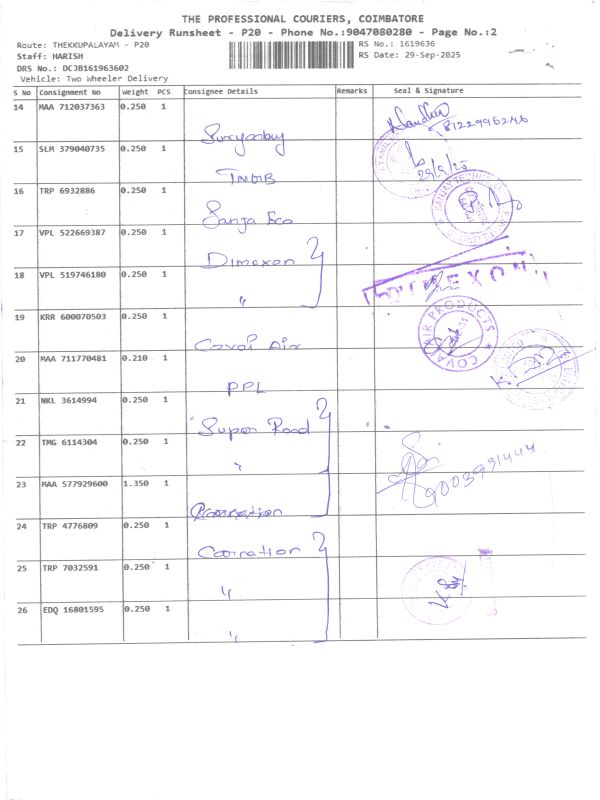 THE PROFESSIONAL COURIERS, COIMBATORE
Delivery Runsheet - P20 - Phone No.:9047080280 - Page No.:2
Route: THEKKUPALAYAM - P20
RS No.: 1619636
Staff: HARISH
RS Date: 29-Sep-2025
DRS No.: DCJB161963602
Vehicle: Two Wheeler Delivery
S No Consignment No Weight PCS Consignee Details Remarks Seal & Signature
14 MAA 712037363 0.250 1
8122996246
15 SLM 379040735 0.250 1
29/9/25
TNDB
16 TRP 6932886 0.250 1
Sanja Eco
17 VPL 522669387 0.250 1
Dimexon
18 VPL 519746180 0.250 1
"
DIMEXON
19 KRR 600070503 0.250 1
Covai Air
COVAI AIR PRODUCTS
20 MAA 711770481 0.210 1
PPL
21 NKL 3614994 0.250 1
Super Road
22 TMG 6114304 0.250 1
"
9003991444
23 MAA 577929600 1.350 1
24 TRP 4776809 0.250 1
Coination
25 TRP 7032591 0.250 1
"
26 EDQ 16801595 0.250 1
"